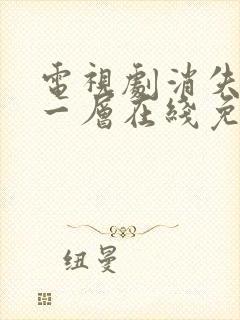 電視劇消失
一層在綫免
纽曼